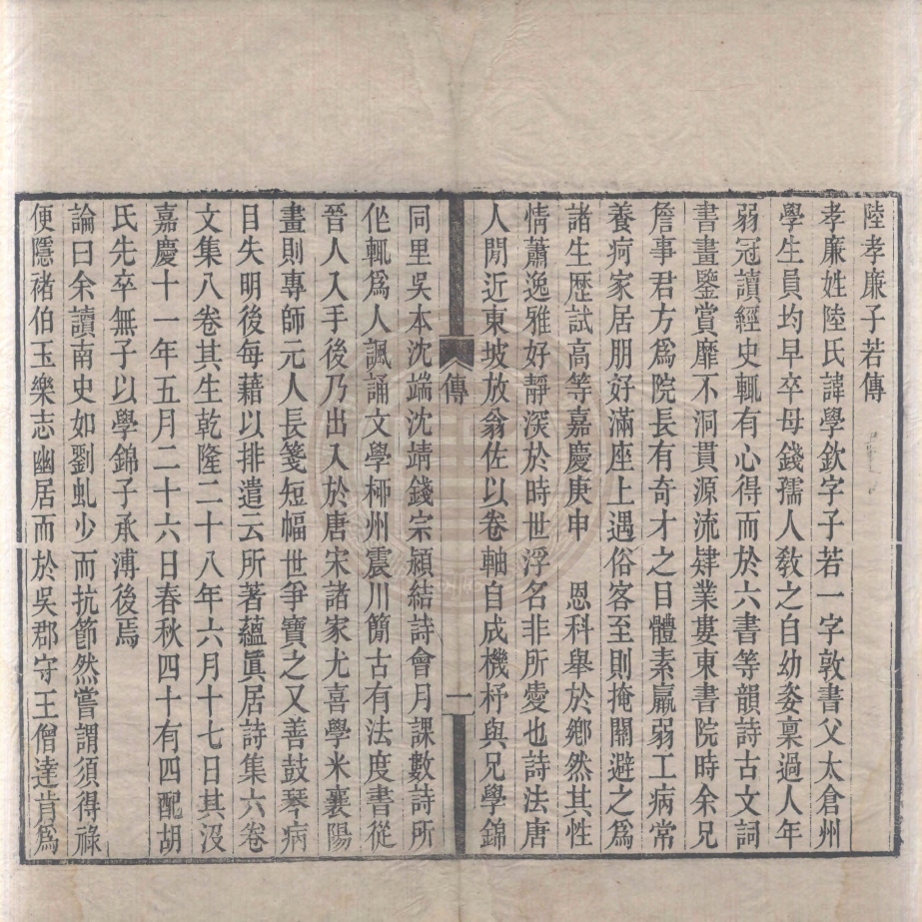 陸孝廉子若傳
孝廉姓陸氏諱學欽字子若一字敦書父太倉州
學生員均早卒母錢孺人敎之自幼姿稟過人年
弱冠讀經史輒有心得而於六書等韻詩古文詞
書畫鑒賞靡不洞貫源流肄業婁東書院時余兄
詹事君方爲院長有奇才之目體素羸弱工病常
養疴家居朋好滿座上遇俗客至則掩關避之爲
諸生歴試高等嘉慶庚申　恩科舉於鄉然其性
情蕭逸雅好靜深於時世浮名非所愛也詩法唐
人閒近東坡放翁佐以卷軸自成機杼與兄學錦
傳
一
同里吳本沈端沈靖錢宗潁結詩會月課數詩所
作輒爲人諷誦文學柳州震川簡古有法度書從
晉人入手後乃出入於唐宋諸家尤喜學米襄陽
畫則專師元人長箋短幅世爭寶之又善鼓琴病
目失明後每藉以排遣云所著藴眞居詩集六卷
文集八卷其生乾隆二十八年六月十七日其沒
嘉慶十一年五月二十六日春秋四十有四配胡
氏先卒無子以學錦子承溥後焉
論曰余讀南史如劉虬少而抗節然嘗謂須得祿
便隱褚伯玉樂志幽居而於吳郡守王僧達肯爲